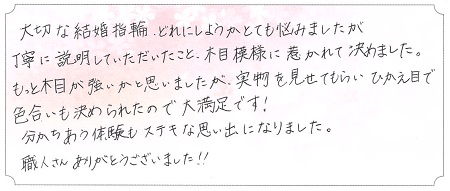 大切な結婚指輪、どれにしようかとても悩みましたが
丁寧に説明していただいたこと、木目模様に惹かれて決めました。
もっと木目が強いかと思いましたが、実物を見せてもらいひかえ目で
色合いも決められたので大満足です!
分かちあう体験もステキな思い出になりました。
職人さんありがとうございました!!